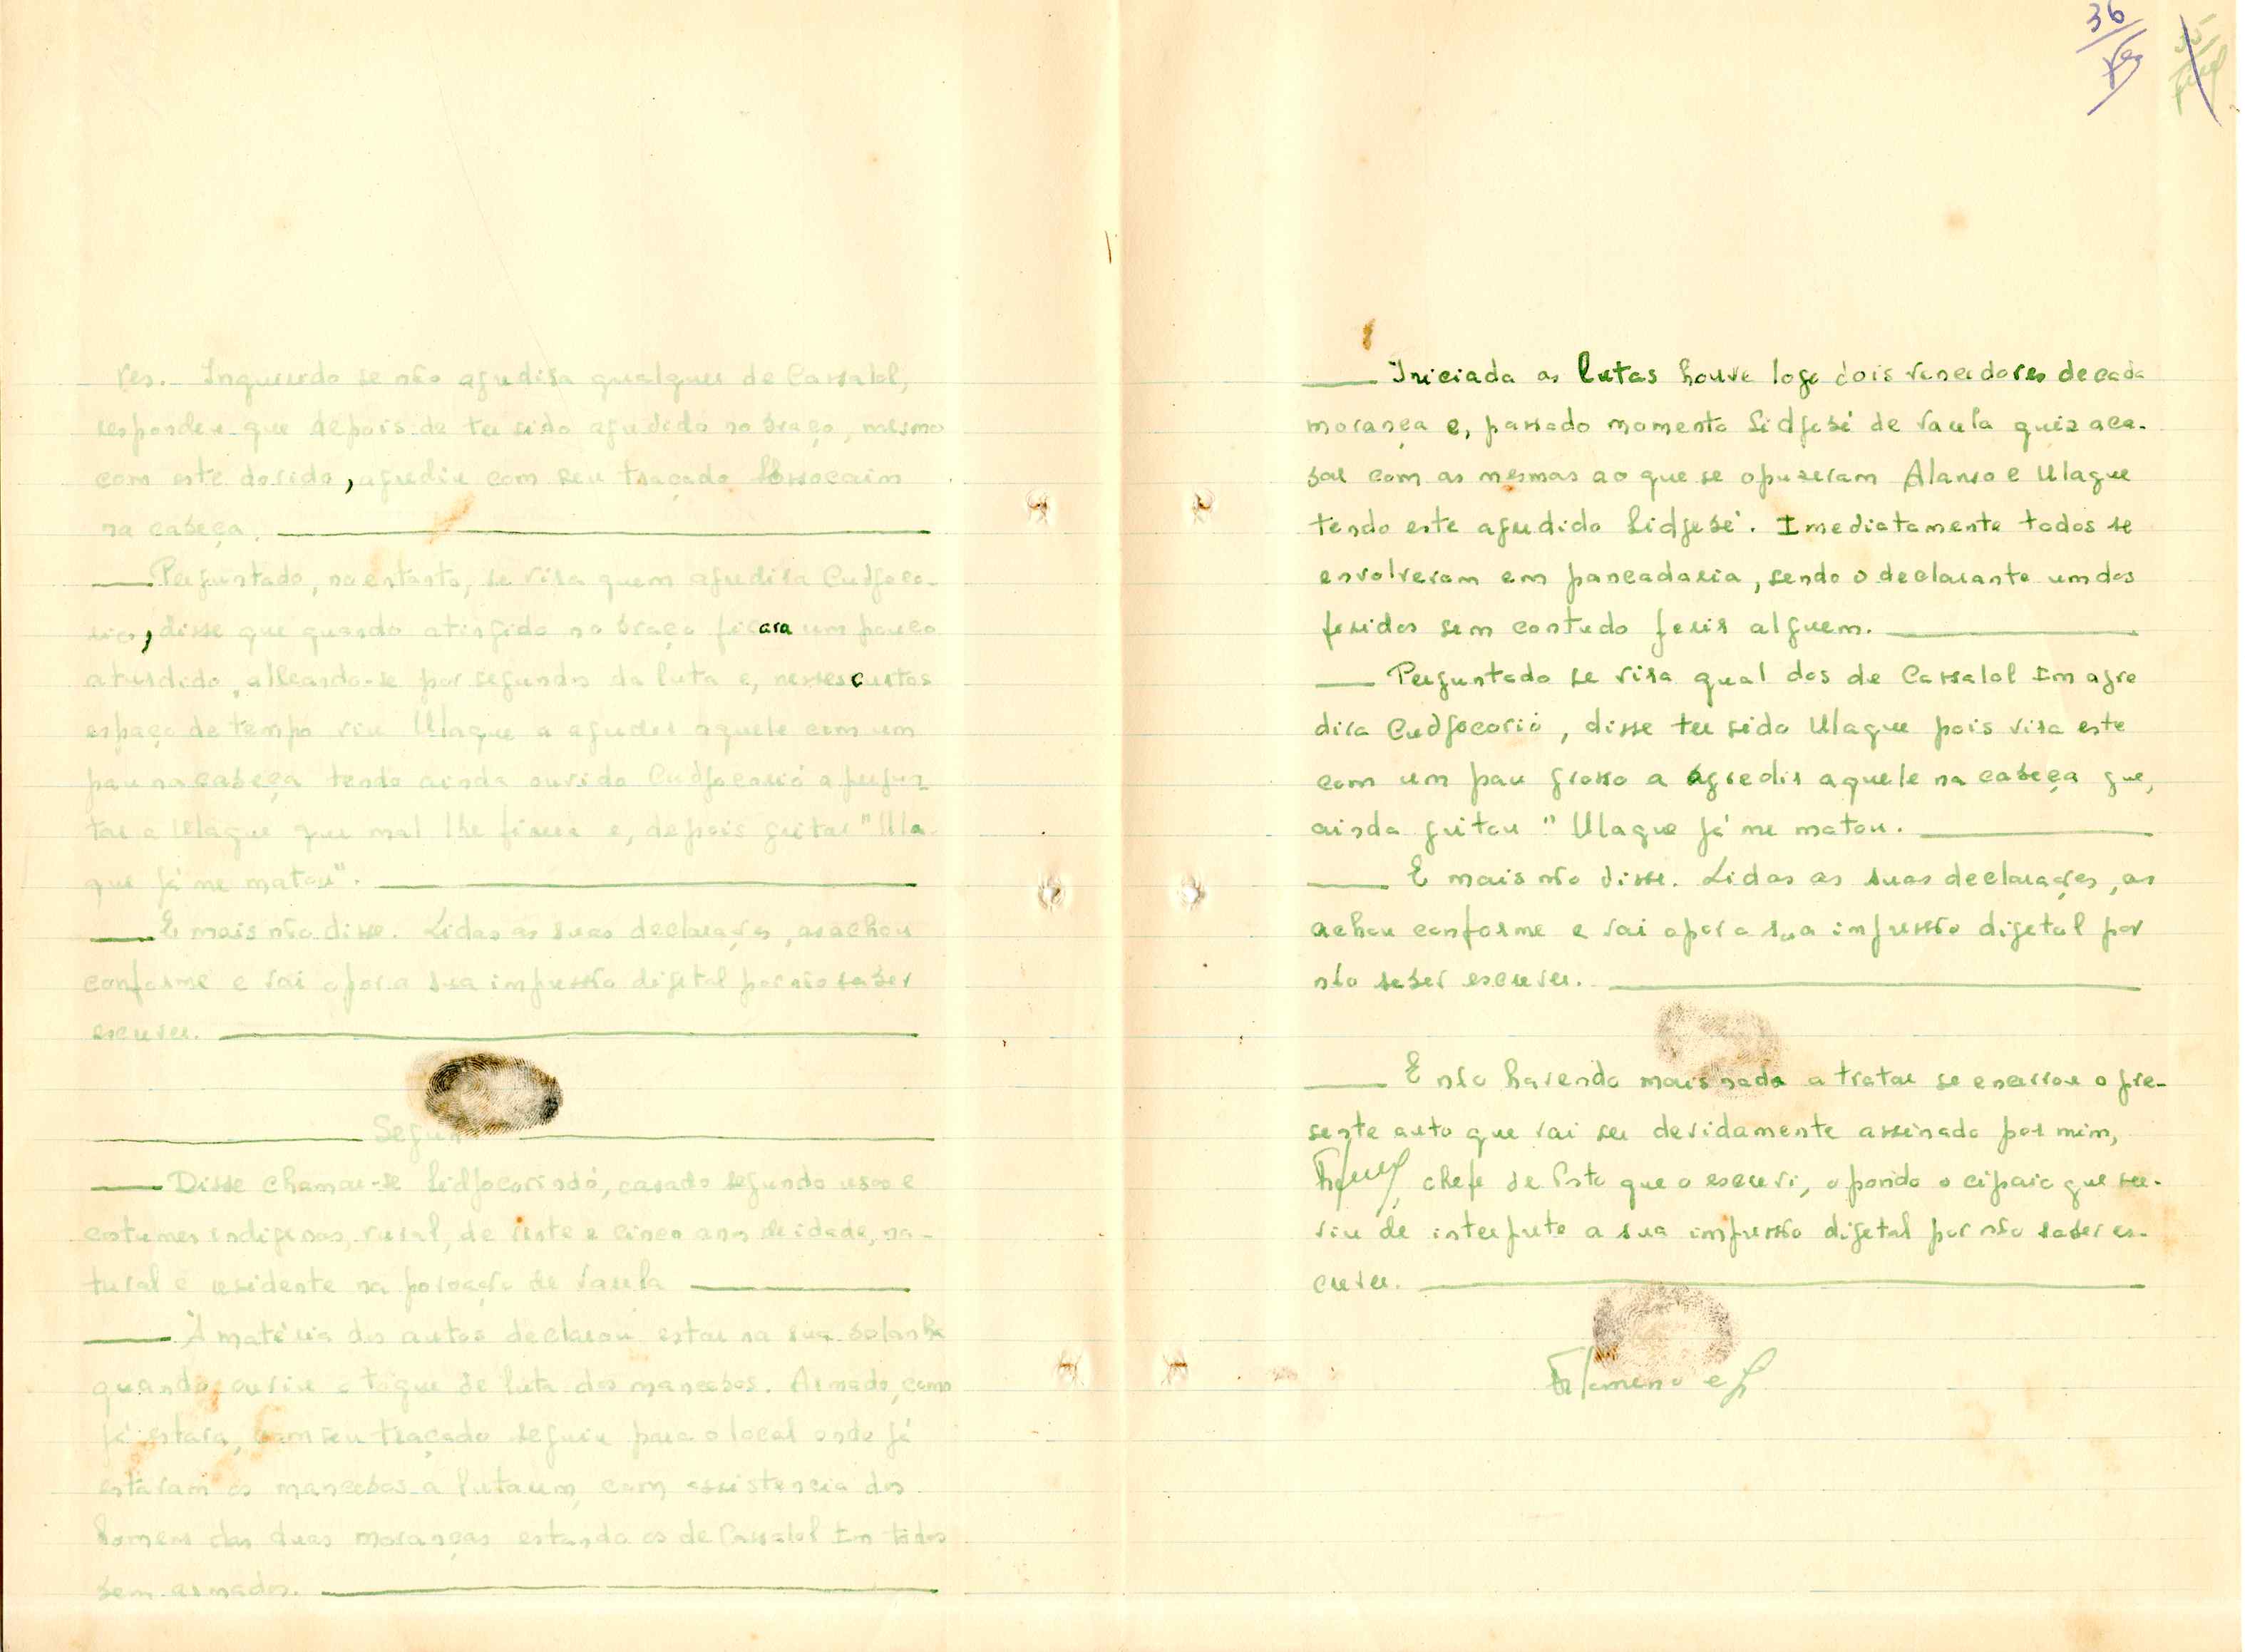 res. Inquirido se não agredira qualquer de Cassalol,
respondeu que depois de ter sido agredido no braço, mesmo
com este dorido, agrediu com seu traçado
na cabeça.
Perguntado, no entanto, se vira quem agredira Cudjoco-
rió, disse que quando atingido no braço ficara um pouco
aturdido, alheando-se por segundos da luta e, nesses curtos
espaço de tempo viu Ulaque a agredir aquele com um
pau na cabeça tendo ainda ouvido Cudjocorió a pergun
tar a Ulaque que mal lhe fizera e, depois gritar "Ula
que já me matou".
E mais não disse. Lidas as suas declarações, as achou
conforme e vai apor a sua impressão digetal por não saber
escrever.
Segun
Disse chamar-se Lidjocorindó, casado segundo usos e
costumes indigenas, rural, de vinte e cinco anos de idade, na-
tural e residente na povoação de Varela
À matéria dos autos declarou estar na sua bolanha
quando ouviu o toque de luta dos mancebos. Armado, como
já estava, com seu traçado seguiu para o local onde já
estavam os mancebos a lutarem, com assistencia dos
homens das duas moranças estando os de Cassalol Em todos
bem armados.
36
35
Iniciada as lutas houve logo dois vencedores de cada
morança e, passado momento Lidjebé de Varela quiz aca-
bar com as mesmas ao que se opuseram Alanso e Ulaque
tendo este agredido Lidjebé. Imediatamente todos se
envolveram em pancadaria, sendo o declarante um dos
feridos sem contudo ferir alguem.
Perguntado se vira qual dos de Cassalol Em agre
dira Cudjocorió, disse ter sido Ulaque pois vira este
com um pau grosso a agredir aquele na cabeça que,
ainda gritou "Ulaque já me matou.
E mais não disse. Lidas as suas declarações, as
achou conforme e vai apor a sua impressão digetal por
não saber escrever.
E não havendo mais nada a tratar se encerrou o pre-
sente auto que vai ser devidamente assinado por mim,
chefe de Posto que o escrevi, opondo o cipaio que ser-
viu de interprete a sua impressão digetal por não saber es-
crever.